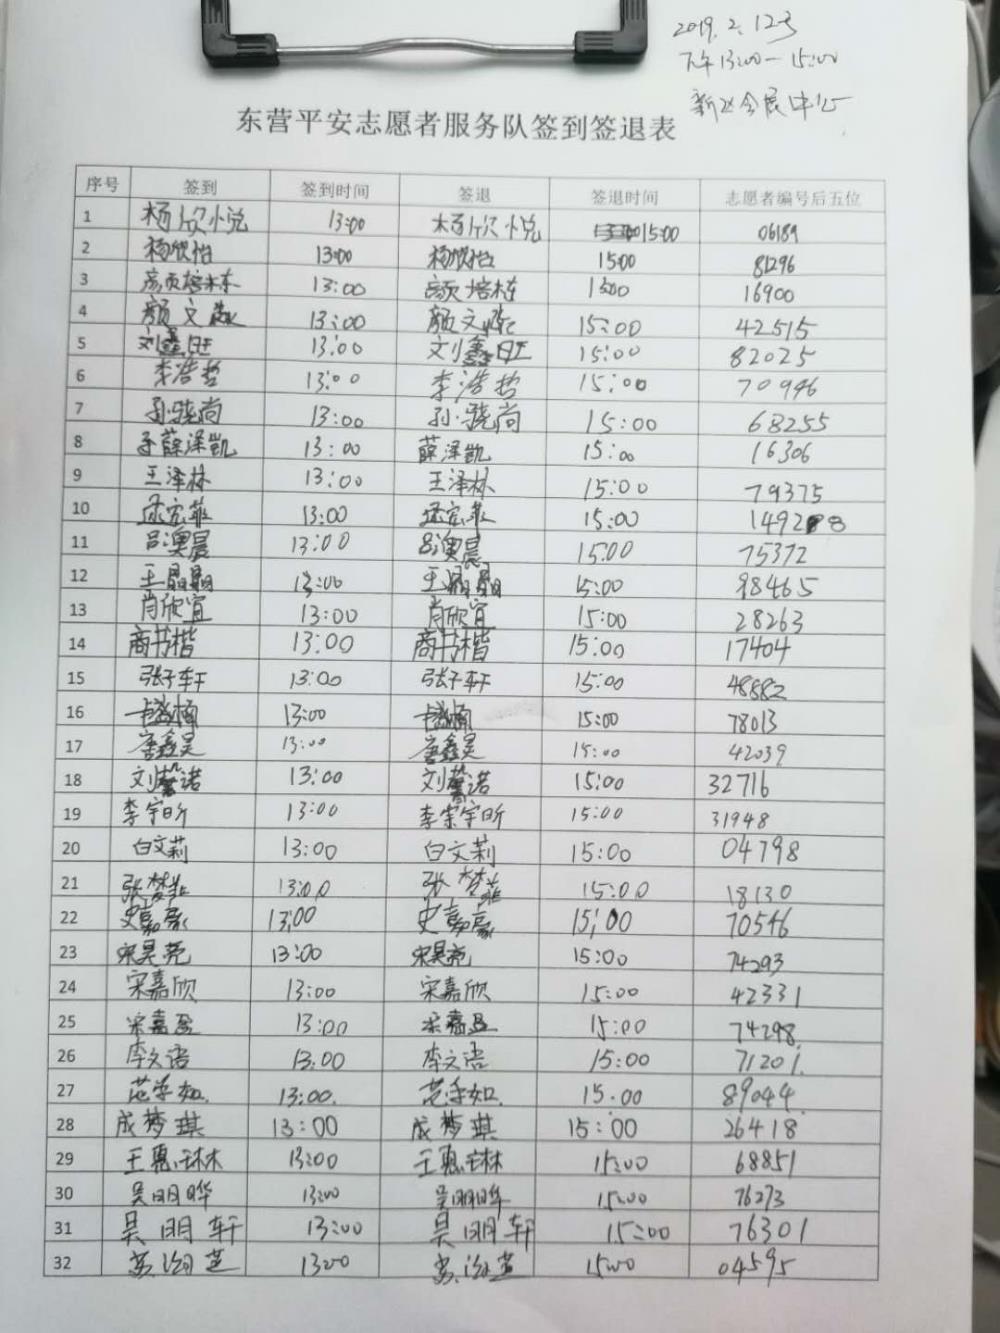 2019.2.12号
下午13:00—15:00
新区会展中心
东营平安志愿者服务队签到签退表
序号 签到 签到时间 签退 签退时间 志愿者编号后五位
1 杨欣悦 13:00 杨欣悦 15:00 06189
2 杨欣怡 13:00 杨欣怡 15:00 81296
3 高页培栋 13:00 高页培栋 16900
4 颜文 13:00 颜文 15:00 42515
5 刘鑫旺 13:00 刘鑫旺 15:00 82025
6 李浩哲 13:00 李浩哲 15:00 70946
7 孙骁尚 13:00 孙骁尚 15:00 68255
8 薛泽凯 13:00 薛泽凯 15:00 16306
9 王泽林 13:00 王泽林 15:00 79375
10 孟宏菲 13:00 孟宏菲 15:00 14928
11 吕澳晨 13:00 吕澳晨 15:00 75372
12 王晶晶 13:00 王晶晶 15:00 98465
13 肖欣宜 13:00 肖欣宜 15:00 28263
14 商书楷 13:00 商书楷 15:00 17404
15 张子轩 13:00 张子轩 15:00 48882
16 13:00 15:00 78013
17 唐鑫昊 13:00 唐鑫昊 15:00 42039
18 刘馨诺 13:00 刘馨诺 15:00 32716
19 李宇昕 13:00 李宗宇昕 15:00 31948
20 白文莉 13:00 白文莉 15:00 04798
21 张梦菲 13:00 张梦菲 15:00 18130
22 史嘉豪 13:00 史嘉豪 15:00 70546
23 宋昊尧 13:00 宋昊尧 15:00 74293
24 宋嘉欣 13:00 宋嘉欣 15:00 42331
25 宋嘉盈 13:00 宋嘉盈 15:00 74298
26 李文语 13:00 李文语 15:00 71201
27 范学如 13:00 范学如 15:00 89044
28 成梦琪 13:00 成梦琪 15:00 26418
29 王惠琳 13:00 王惠琳 15:00 68851
30 吴明晔 13:00 吴明晔 15:00 76273
31 吴明轩 13:00 吴明轩 15:00 76301
32 13:00 15:00 04595